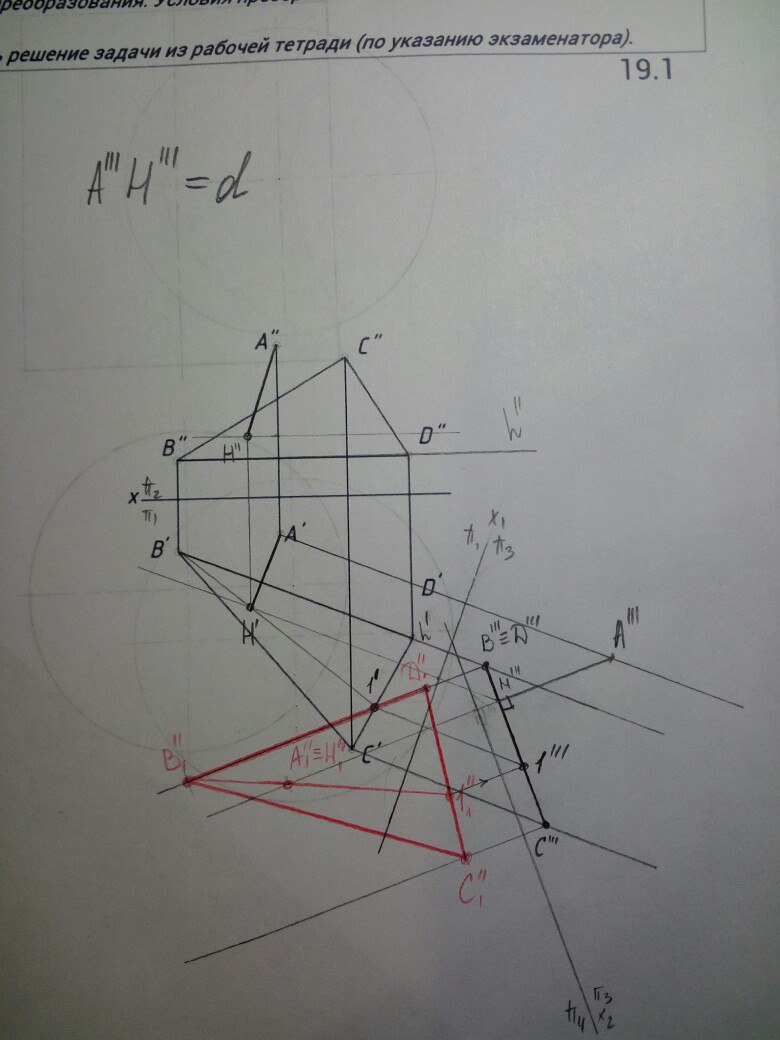 преобразования. Условия
решение задачи из рабочей тетради (по указанию экзаменатора).
19.1
A''' H''' = d
A''
C''
h''
D''
B''
H''
x π₂
π₁
A'
B'
x₁
π₁ π₃
D'
H'
h'
B'''≡D'''
A'''
D''₁
H'''
1'
B''₁
A''₁≡H''₁
C'
1'''
1''₁
C'''
C''₁
π₃
π₄ x₂